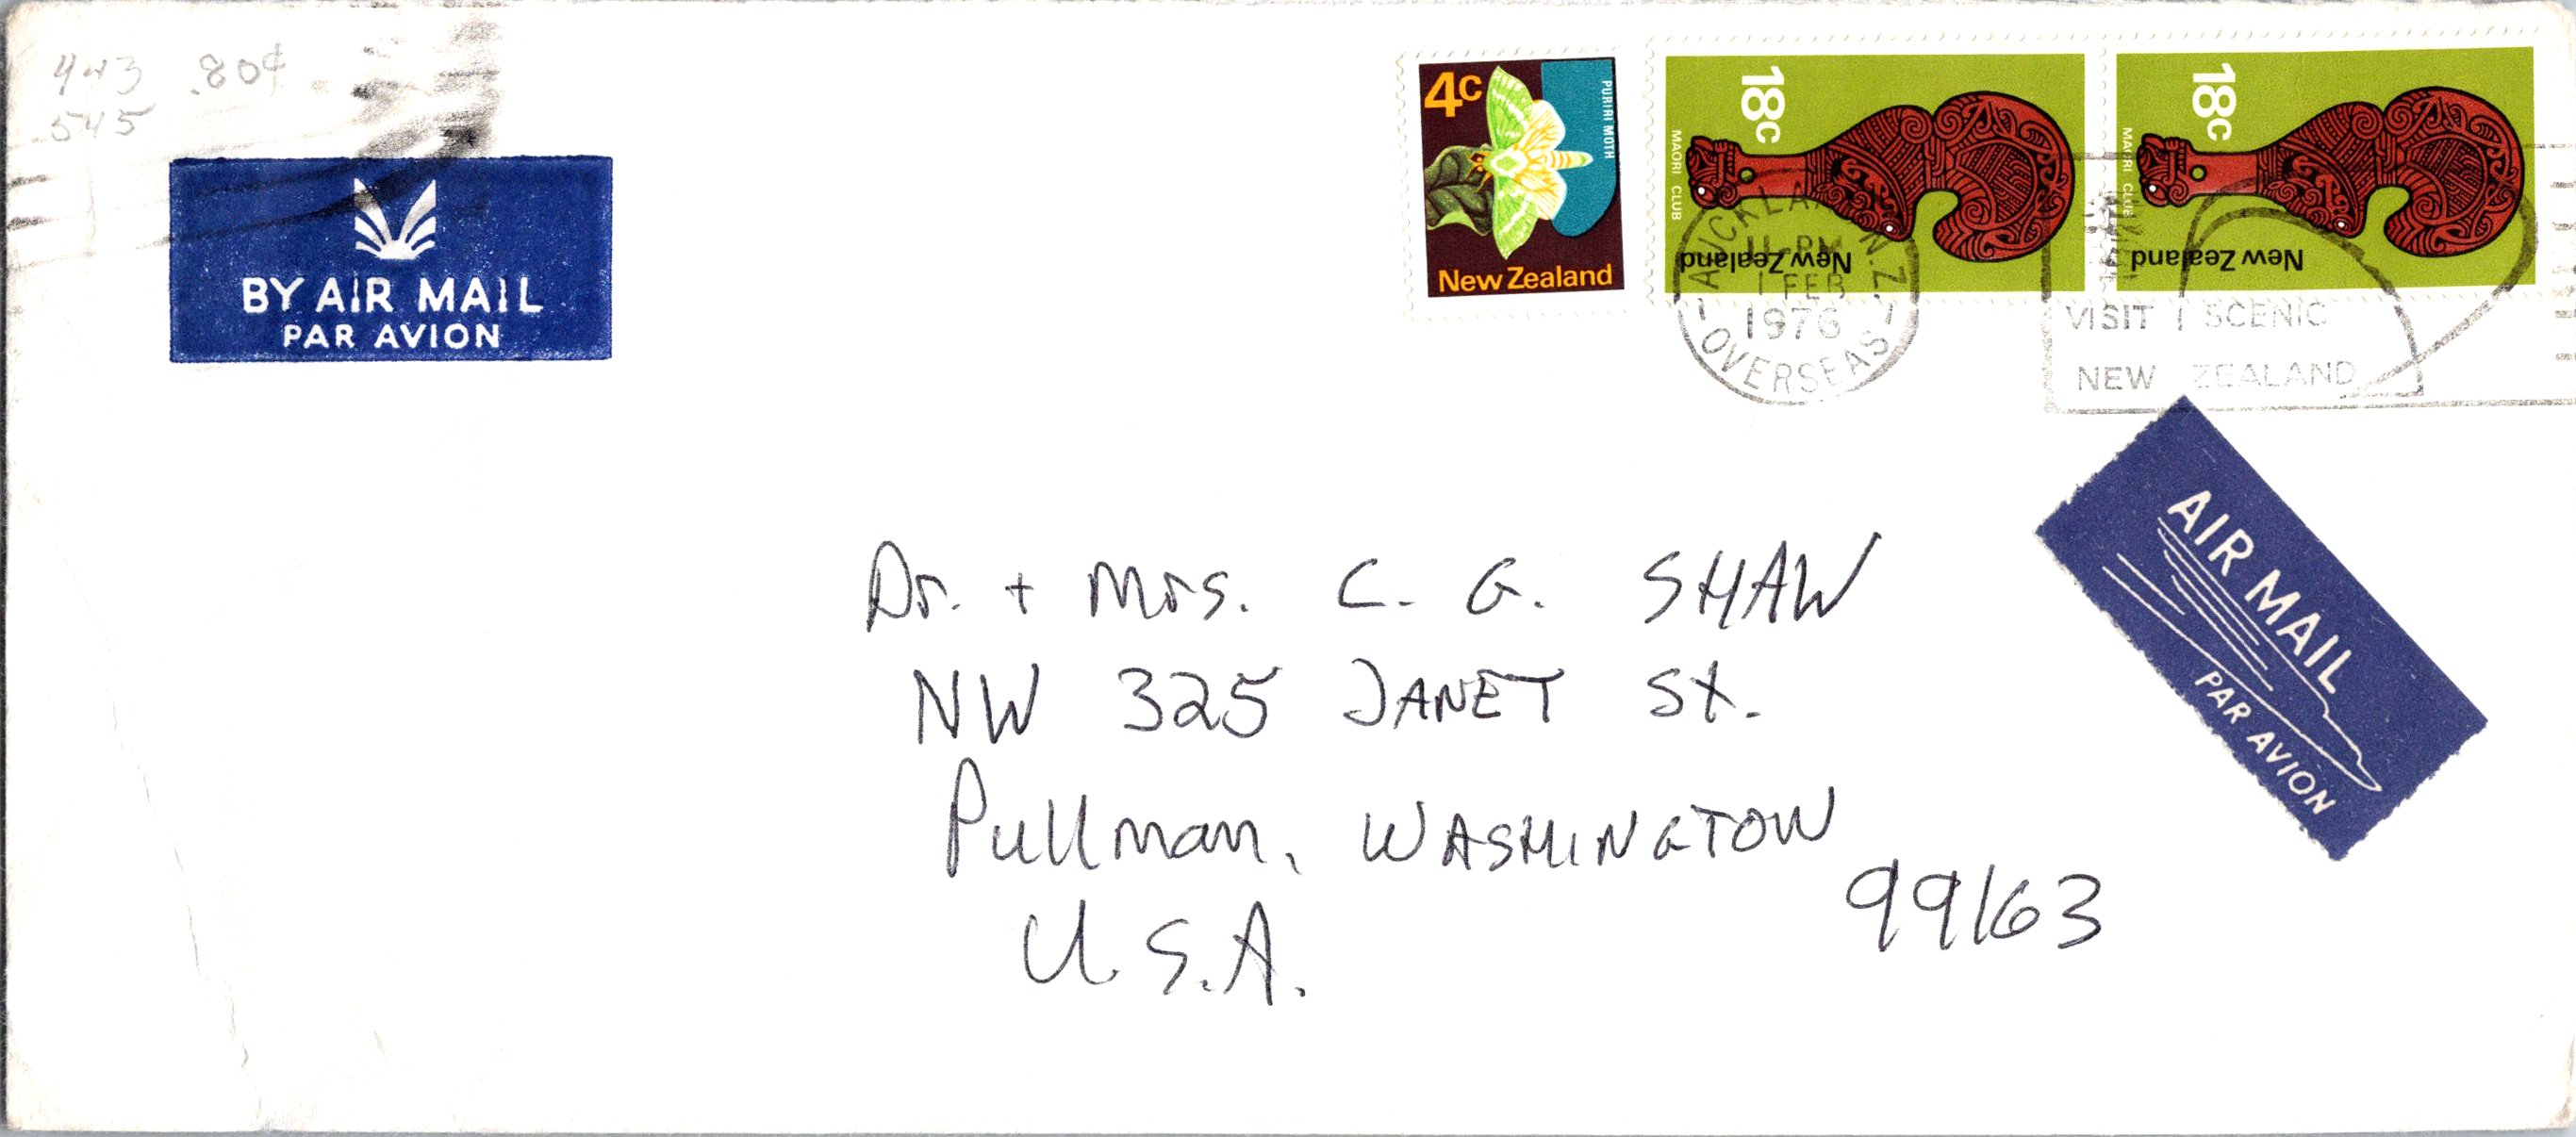 443 .80¢
545
BY AIR MAIL
PAR AVION
4c
PURIRI MOTH
New Zealand
18c
MAORI CLUB
New Zealand
18c
MAORI CLUB
New Zealand
AUCKLAND N.Z.
11-PM
1 FEB
1976
-OVERSEAS-
VISIT SCENIC
NEW ZEALAND
AIR MAIL
PAR AVION
Dr. + Mrs. C. G. SHAW
NW 325 JANET St.
Pullman, WASHINGTON
99163
U.S.A.